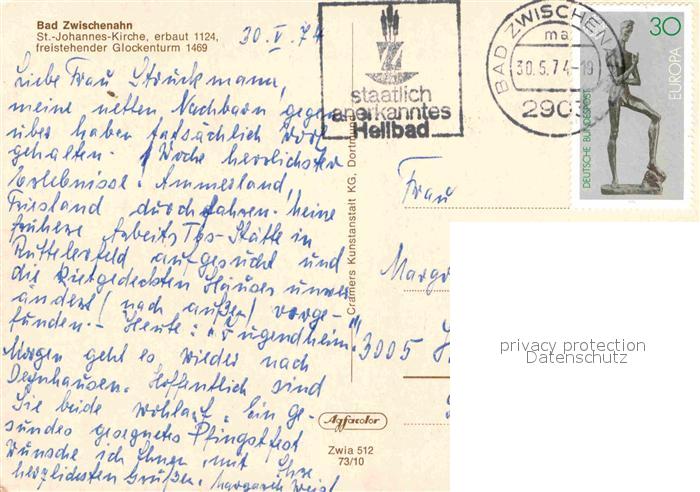 Bad Zwischenahn
St.-Johannes-Kirche, erbaut 1124,
freistehender Glockenturm 1469
30.V.74
Liebe Frau Struckmann,
meine netten Nachbarn gegen
über haben tatsächlich Wort
gehalten. 1 Woche herrlichster
Erlebnisse. Ammerland,
Friesland durchfahren. Meine
frühere Arbeits Tgs-Stätte in
aufgesucht und
die Rietgedeckten Häuser unver
ändert (nach außen) vorge-
funden. - Heute: "Tugendheim"
Morgen geht es wieder nach
Oeynhausen. Hoffentlich sind
Sie beide wohlauf. Ein ge-
sundes gesegnetes Pfingstfest
wünsche ich Ihnen mit
herzlichsten Grüßen. Ihre
Margarete
staatlich
anerkanntes
Heilbad
BAD ZWISCHENAHN
ma
30.5.74-19
2903
30
EUROPA
DEUTSCHE BUNDESPOST
Cramers Kunstanstalt KG, Dortmund
Frau
Margr
3005
Agfacolor
Zwia 512
73/10
privacy protection
Datenschutz